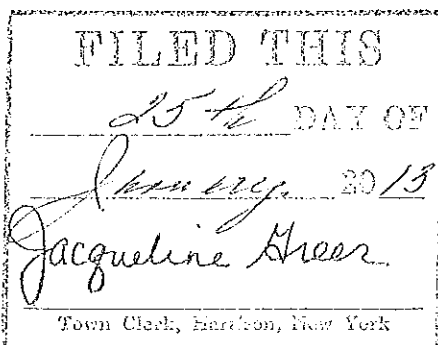 FILED THIS
25th DAY OF
January, 2013
Jacqueline Greer
Town Clerk, Harrison, New York